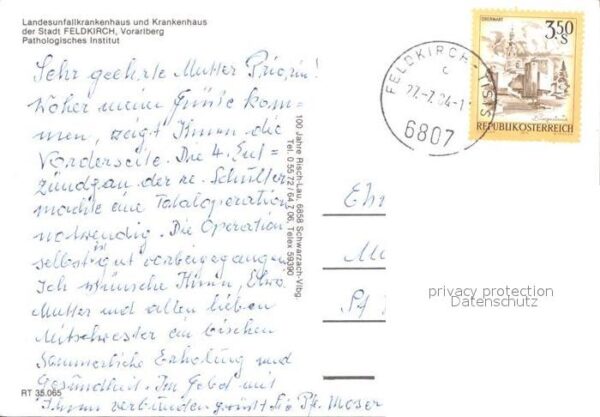 Landesunfallkrankenhaus und Krankenhaus
der Stadt FELDKIRCH, Vorarlberg
Pathologisches Institut
Sehr geehrte Mutter Priorin!
Woher meine Grüsse kom-
men, zeigt Ihnen die
Vorderseite. Die 4. Ent-
zündgan der re. Schulter
machte eine Totaloperation
notwendig. Die Operation
selbst ist gut vorbeigegangen.
Ich wünsche Ihnen, Ehrw.
Mutter und allen lieben
Mitschwester ein bischen
sommerliche Erholung und
Gesundheit. Im Gebet mit
Ihnen verbunden grüsst Sie Pfr. Moser
RT 35.065
100 Jahre Risch-Lau, 6858 Schwarzach-Vlbg.
Tel. 0 55 72 / 64 2 06, Telex 59390
FELDKIRCH-TISIS
c
27.-7.84-1
6807
OBERWART
3,50
S
REPUBLIK ÖSTERREICH
Eh
M
privacy protection
Datenschutz